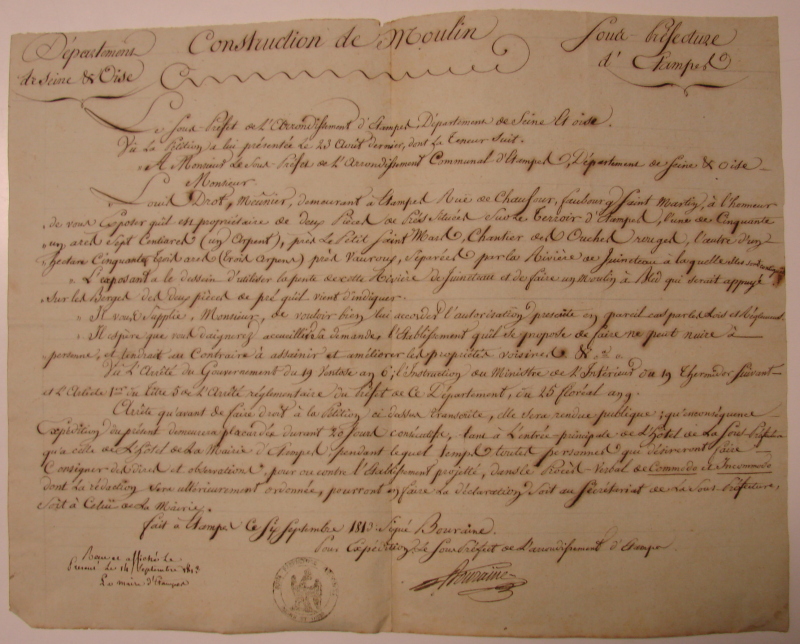 Département
de Seine & Oise
Construction de Moulin
Sous-Préfecture
d'Etampes
Le Sous-Préfet de l'Arrondissement d'Etampes, Département de Seine et Oise.
Vu la Pétition a lui présentée le 23 Août dernier, dont la teneur suit.
"A Monsieur le Sous-Préfet de l'Arrondissement Communal d'Etampes, Département de Seine & Oise
Monsieur
Louis Drot, Meunier, demeurant à Etampes Rue de Chaufour, faubourg Saint Martin, à l'honneur
de vous Exposer qu'il est propriétaire de deux Pièces de Prés Situées sur le terroir d'Etampes, l'une de Cinquante
un ares Sept Centiares (un Arpent), près le Petit Saint Mard, Chantier des Ouches rouges, l'autre d'un
hectare Cinquante trois ares (trois Arpens) près Vauroux, séparées par la Rivière de Juineteau à laquelle elles sont
" L'exposant a le dessein d'utiliser la pente de cette Rivière de Juineteau et de faire un Moulin à Bled qui serait appuyé
Sur les Berges des deux pièces de pré qu'il vient d'indiquer.
" Il vous Supplie, Monsieur, de vouloir bien lui accorder l'autorisation prescrite en pareil cas par les Lois et Réglemens
" Il espère que vous daignerez accueillir sa demande, l'Etablissement qu'il se propose de faire ne peut nuire à
personne, et tendrait au Contraire à assainir et améliorer les propriétés voisines. &
Vu l'Arrêté du Gouvernement du 19 Ventose an 6, l'Instruction du Ministre de l'Intérieur du 19 Thermidor Suivant
et l'Article 1er du titre 5 de l'Arrêté réglementaire du Préfet de Ce Département, du 25 floréal an 9.
Arrête qu'avant de faire droit à la Pétition ci dessus transcrite, elle Sera rendue publique ; qu'en conséquence
Expédition du présent demeurera placardée durant 20 Jours consécutifs, tant à l'entrée principale de l'Hôtel de la Sous-Préfecture
qu'à celle de l'Hôtel de la Mairie d'Etampes pendant lequel temps toutes personnes qui désireront faire
Consigner des dires et observations pour ou contre l'Etablissement projetté, dans le Procès Verbal de Commodo et Incommodo
dont la rédaction Sera ultérieurement ordonnée, pourront en faire la déclaration Soit au Sécrétariat de la Sous-Préfecture,
Soit à Celui de la Mairie.
fait à Etampes Ce Septembre 1813 Signé Bouraine.
Pour Expédition, Le Sous Préfet de l'arrondissement d'Etampes
Bouraine
affichée le
Présent le 14 Septembre 1813
Le maire d'Etampes